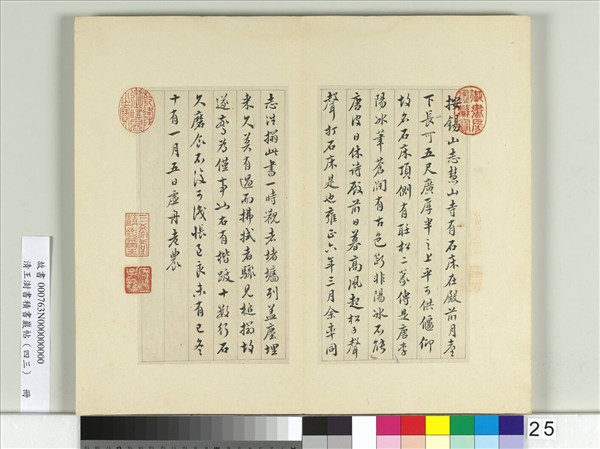 按錫山志慧山寺有石床在殿前月臺
下長可五尺廣厚半之上平可供偃仰
故名石床頂側有聽松二篆傳是唐李
陽冰筆蒼潤有古色斷非陽冰不能
唐皮日休詩殿前日暮高風起松子聲
聲打石床是也雍正六年三月余率同
志洗搨此書一時觀者堵墻列蓋塵埋
来久美有過而拂拭者驟見搥搨故
遂奇為僅事山右有楷跋十數行石
久磨泐不復可識悵悵良未有已冬
十有一月五日虛舟老農
故書000763N000000000
清王澍書積書巖帖(四三) 冊
25